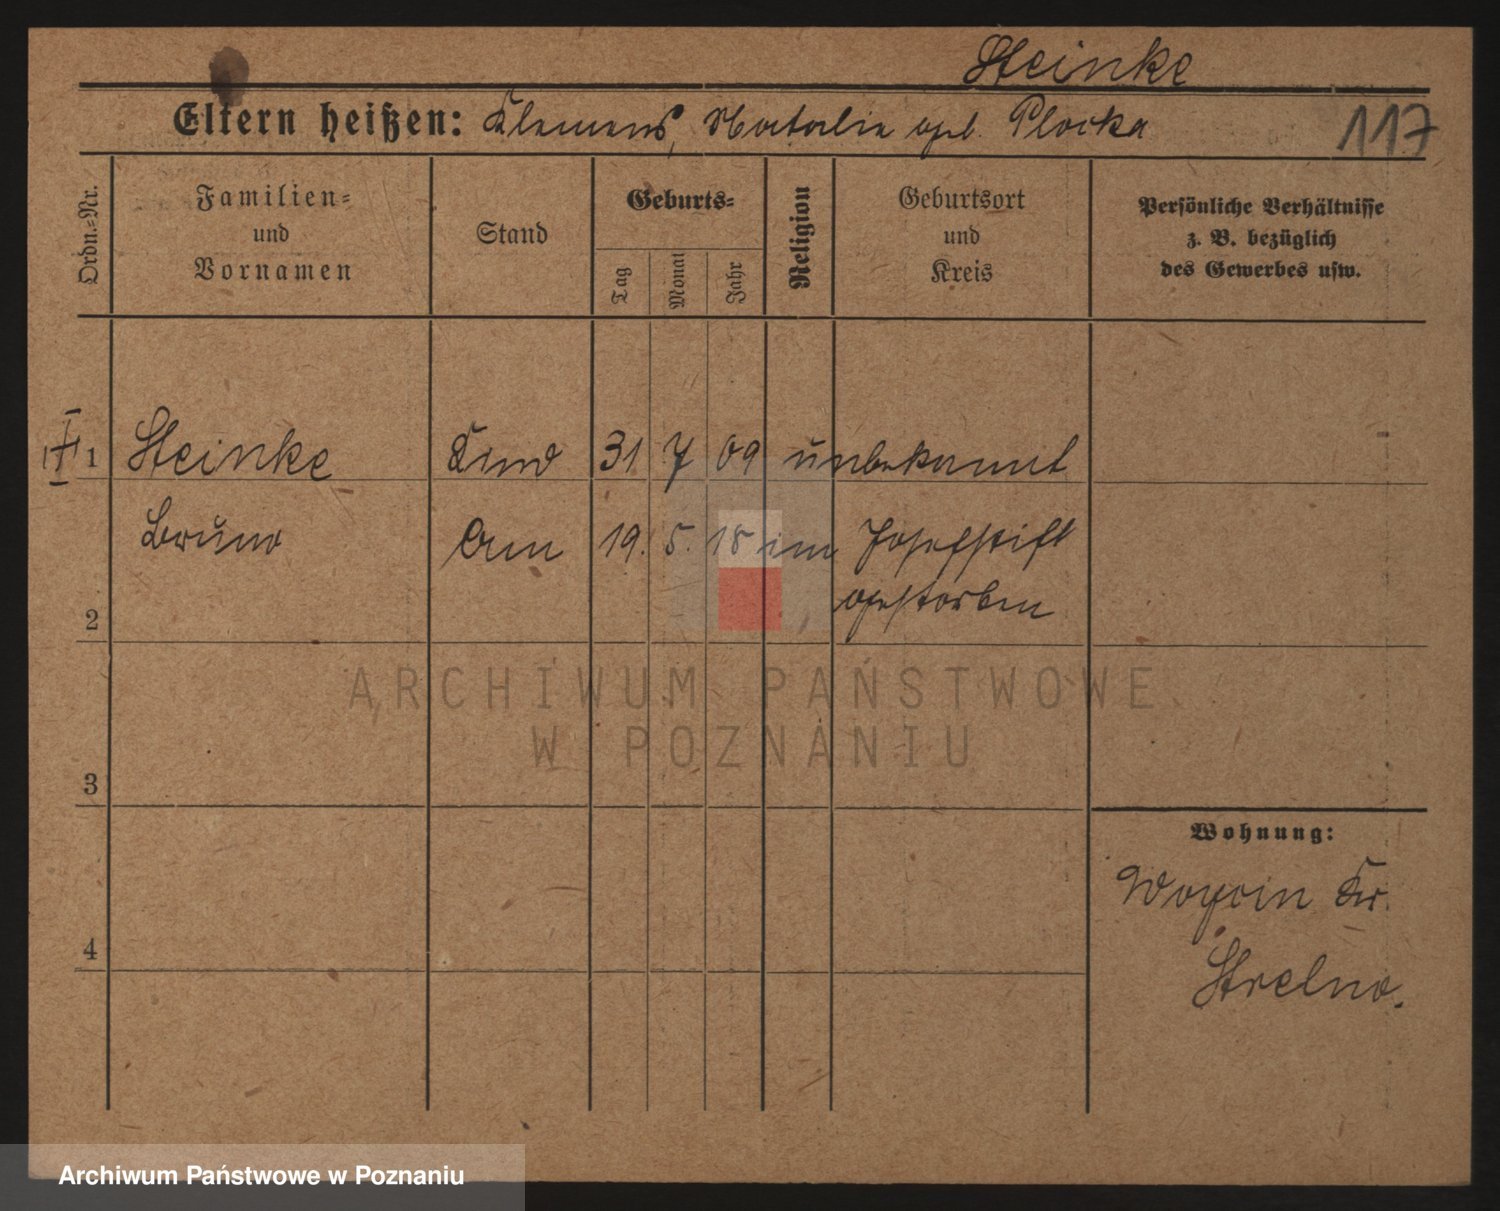 Steinke
Eltern heißen: Klemens, Natalie geb. Plocka
117
Ordn.=Nr.
Familien=
und
Vornamen
Stand
Geburts=
Tag
Monat
Jahr
Religion
Geburtsort
und
Kreis
Persönliche Verhältnisse
z. B. bezüglich
des Gewerbes usw.
1 Steinke Kind 31 7 09 unbekannt
Bruno Am 19. 5. 18 im Josefstift
gestorben
2
ARCHIWUM PAŃSTWOWE
W POZNANIU
3
Wohnung:
Woycin Kr.
4
Strelno.
Archiwum Państwowe w Poznaniu